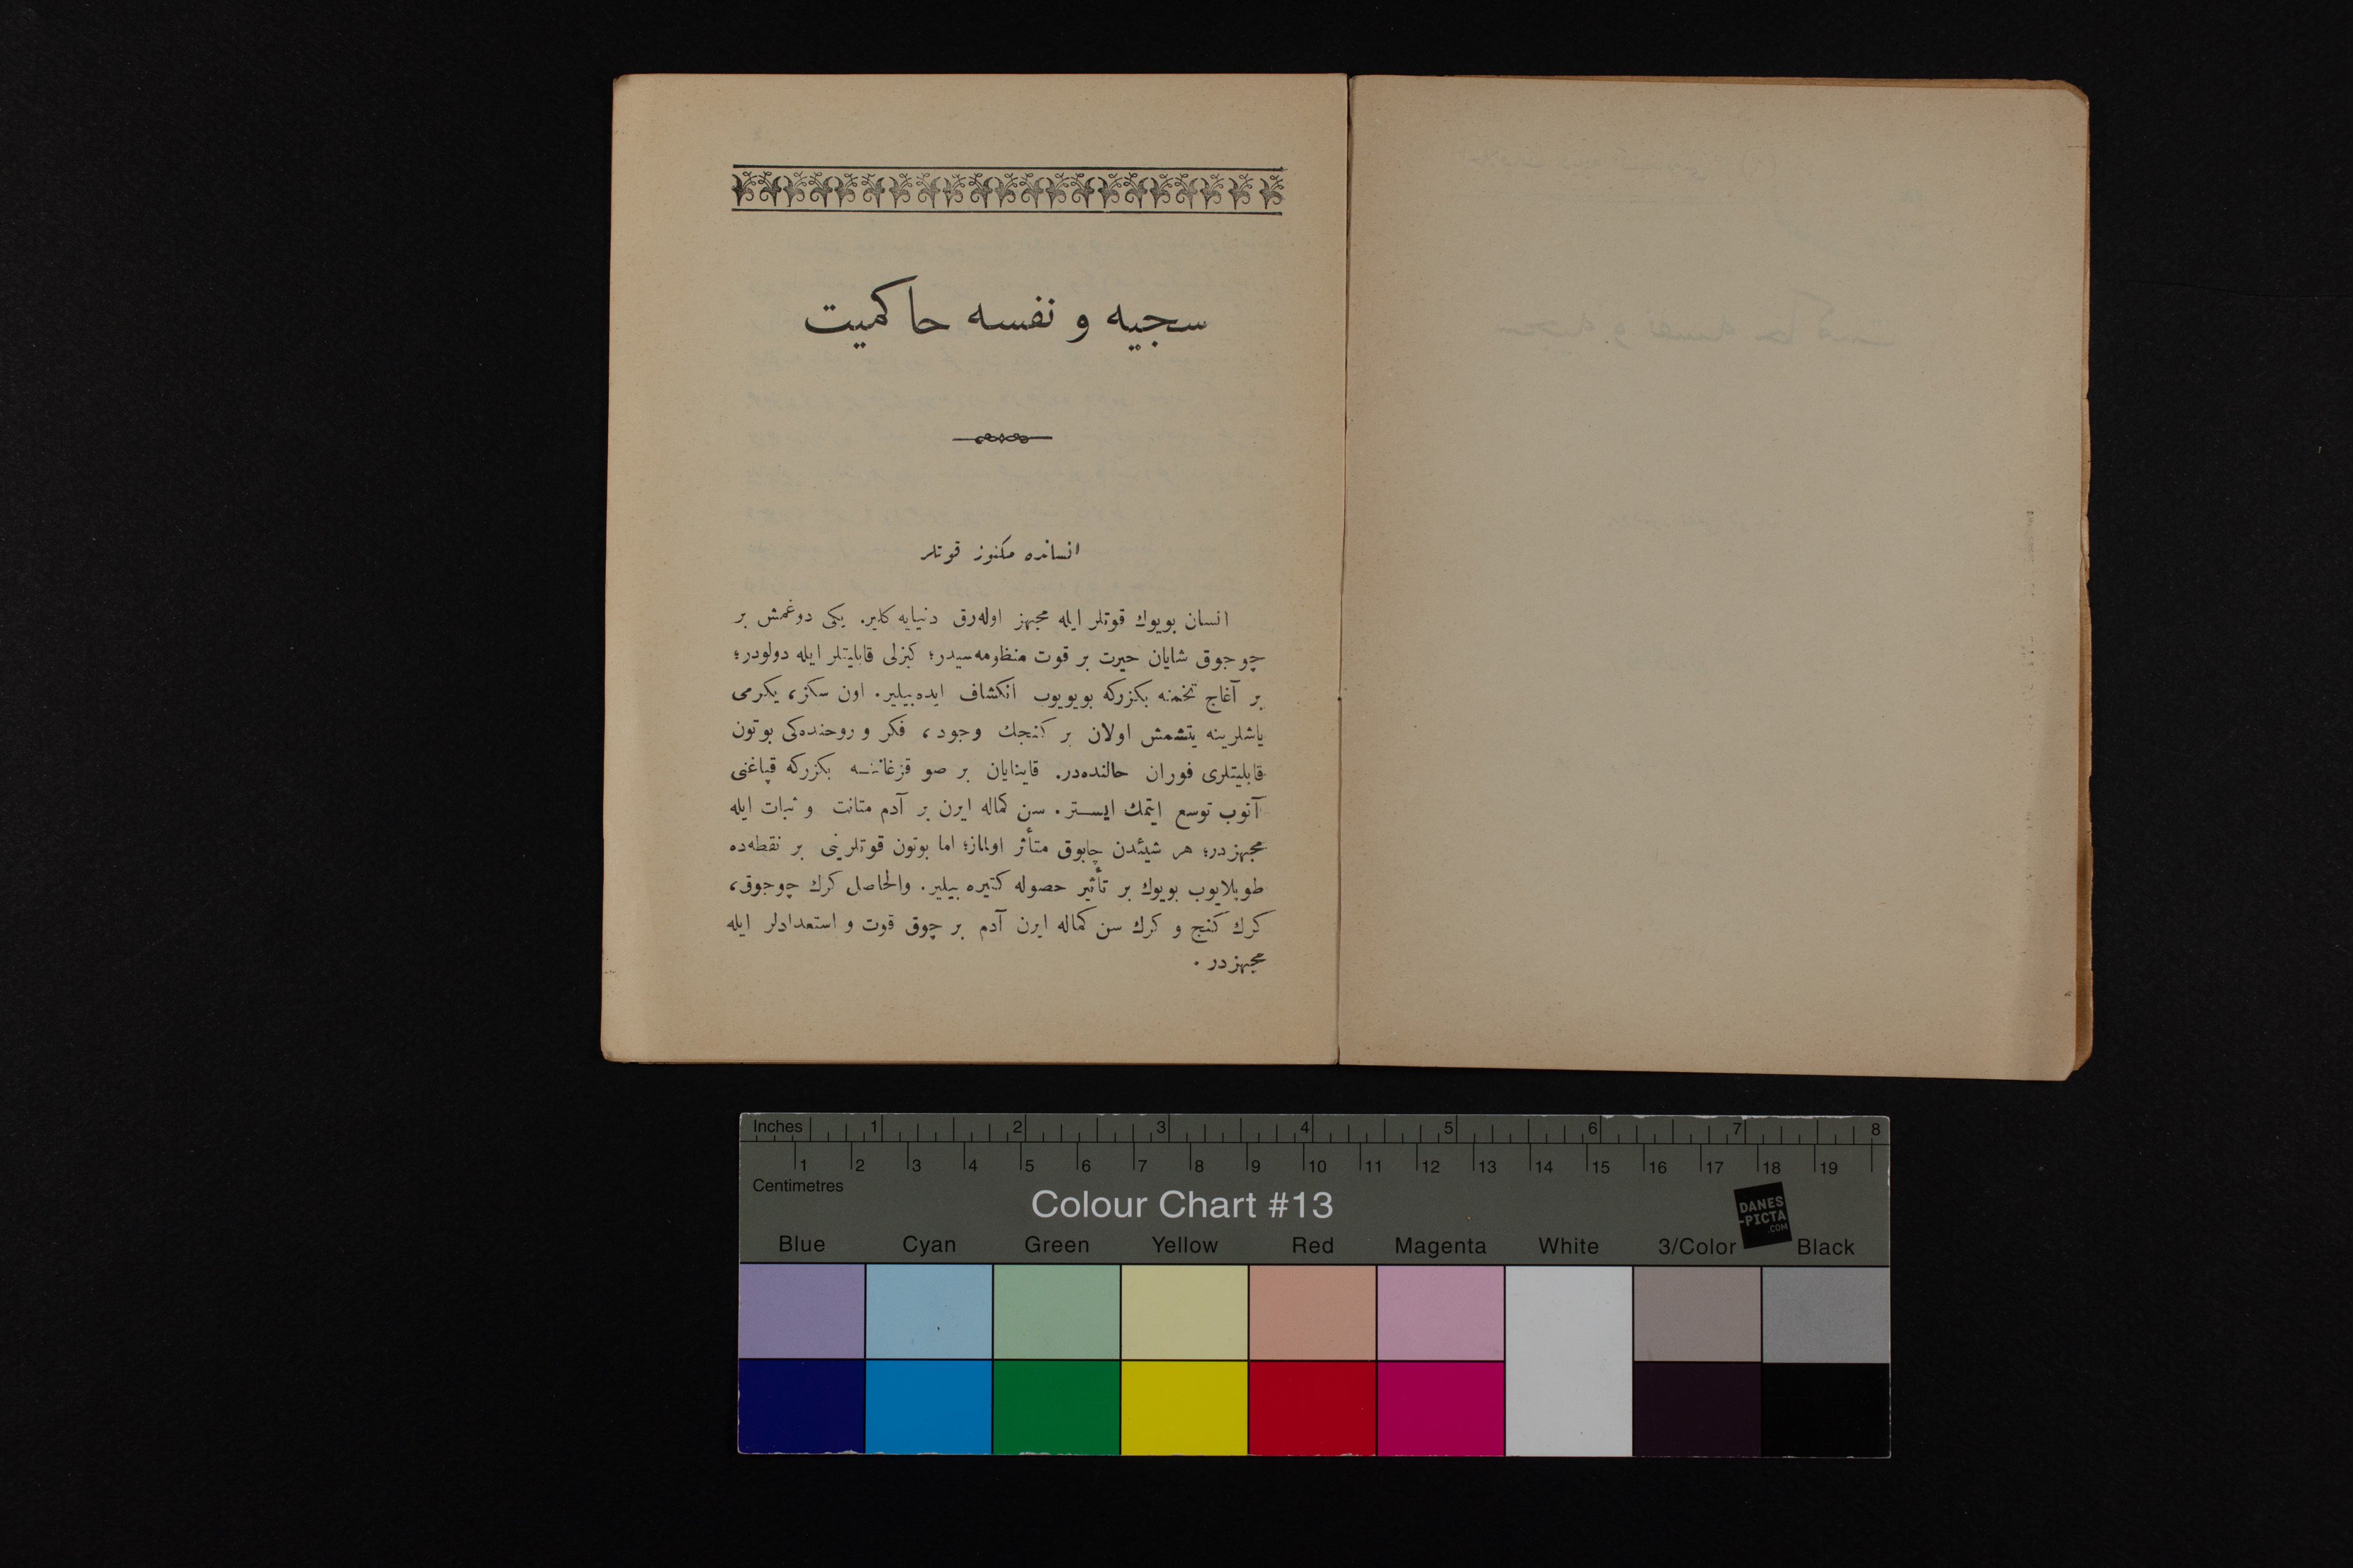 سجیه و نفسه حاکمیت
انسانده مکنوز قوتلر
انسان بویوك قوتلر ایله مجهز اوله‌رق دنیایه کلیر. یکی دوغمش بر
چوجوق شایان حیرت بر قوت منظومه‌سیدر؛ کیزلی قابلیتلر ایله دولودر؛
بر آغاج تخمنه بکزرکه بویویوب انکشاف ایده‌بیلیر. اون سکز، یکرمی
یاشلرینه یتشمش اولان بر کنجك وجود، فکر و روحنده‌کی بوتون
قابلیتلری فوران حالنده‌در. قاینایان بر صو قزغاننه بکزرکه قپاغنی
آتوب توسع ایتمك ایستر. سن کماله ایرن بر آدم متانت و ثبات ایله
مجهزدر؛ هر شیئدن چابوق متأثر اولماز؛ اما بوتون قوتلرینی بر نقطه‌ده
طوپلایوب بویوك بر تأثیر حصوله کتیره بیلیر. والحاصل کرك چوجوق،
کرك کنج و کرك سن کماله ایرن آدم بر چوق قوت و استعدادلر ایله
مجهزدر.
Inches 1 2 3 4 5 6 7 8
1 2 3 4 5 6 7 8 9 10 11 12 13 14 15 16 17 18 19
Centimetres
Colour Chart #13
DANES
-PICTA
.COM
Blue Cyan Green Yellow Red Magenta White 3/Color Black